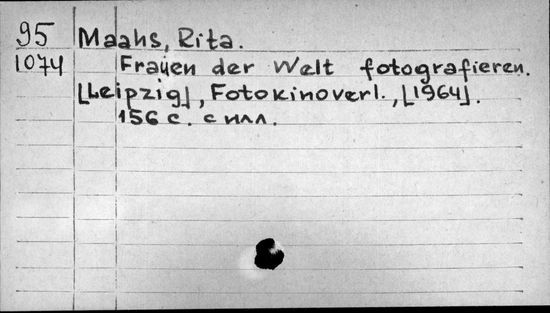 95 Maahs, Rita.
1074 Frauen der Welt fotografieren.
[Leipzig], Fotokinoverl., [1964].
156 с. с илл.